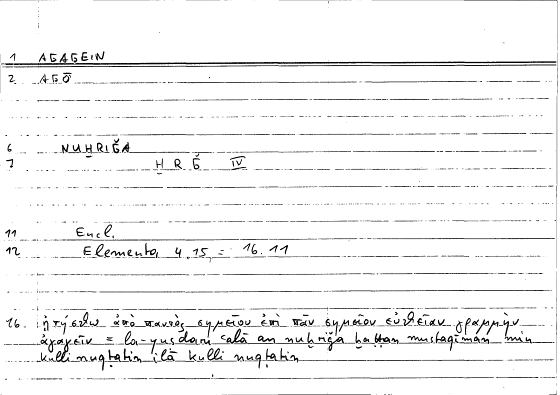 1 AGAGEIN
2 AGŌ
6 NUḪRIǦA
7 Ḫ R Ǧ IV
11 Eucl.
12 Elementa 4.15 = 16.11
16. ᾐτήσθω ἀπὸ παντὸς σημείου ἐπὶ πᾶν σημεῖον εὐθεῖαν γραμμὴν
ἀγαγεῖν = la-yuṣdar ʿalā an nuḫriǧa ḫaṭṭan mustaqīman min
kulli nuqṭatin ilā kulli nuqṭatin